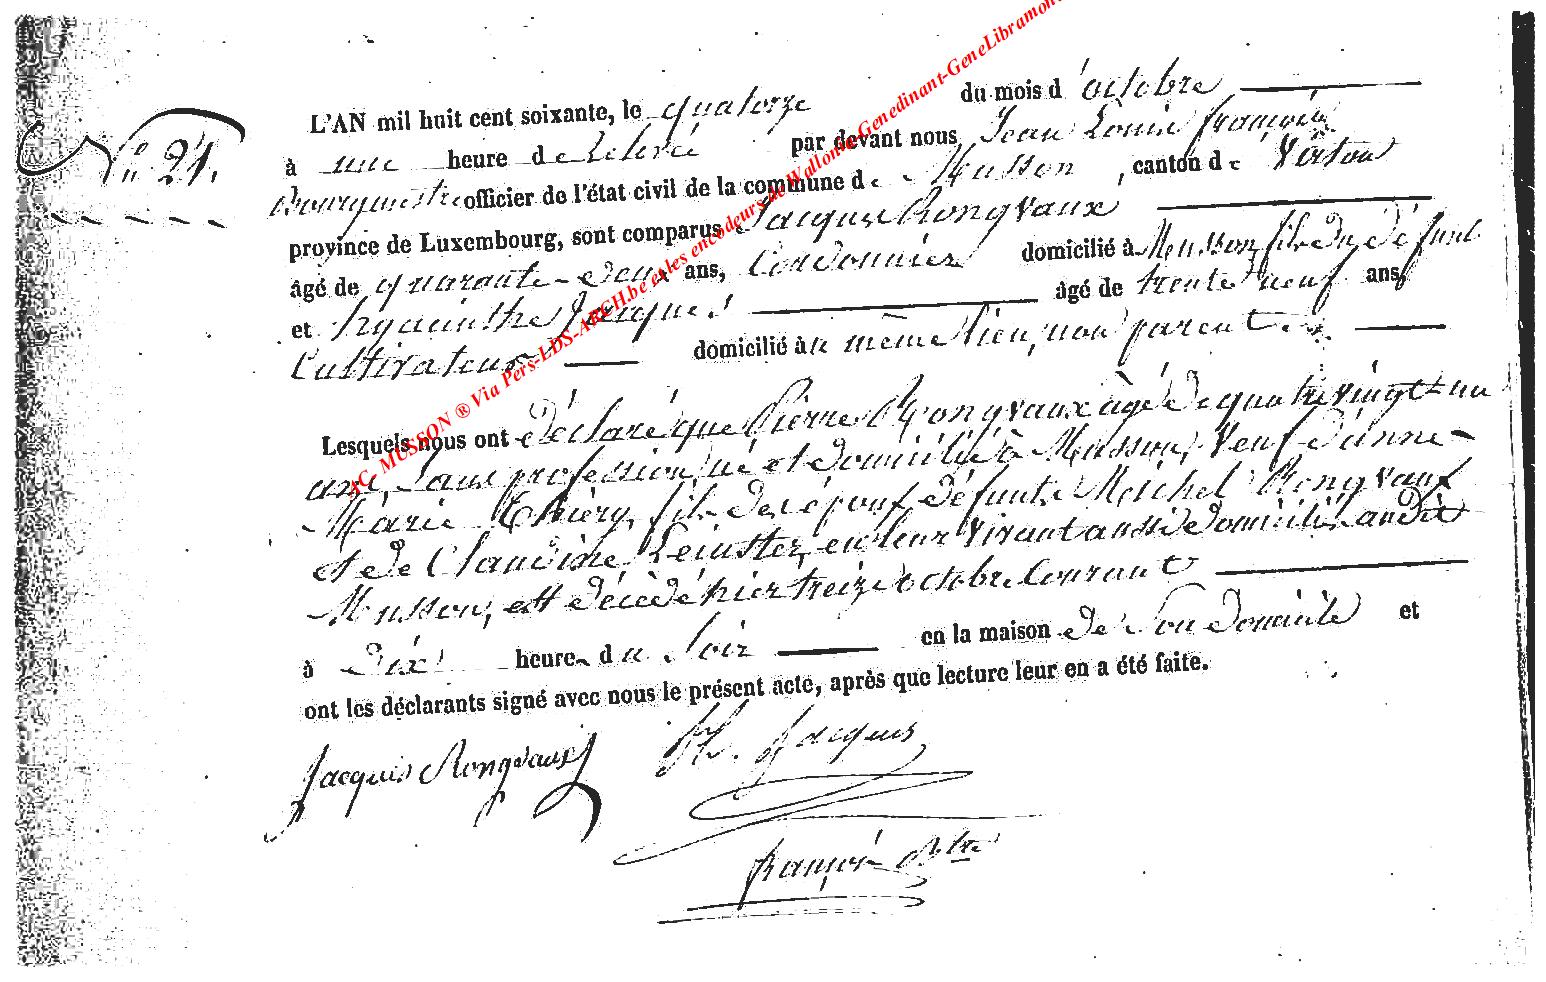 N° 21.
L'AN mil huit cent soixante, le quatorze du mois d'octobre
à une heure de relevé par devant nous Jean Louis françois
Bourgmestre officier de l'état civil de la commune de Musson, canton de Virton
province de Luxembourg, sont comparus Jacques Rongvaux
âgé de quarante-deux ans, Cordonnier domicilié à Musson fils du défunt
et hyacinthe Jacques âgé de trente neuf ans,
Cultivateur domicilié au même lieu, non parent
Lesquels nous ont déclaré que Pierre Rongvaux âgé de quatre vingt-un
ans, Sans profession, né et domicilié à Musson, veuf d'anne-
Marie Thiéry, fils des époux défunts Meichel Rongvaux
et de Claudine Lecuster, en leur vivant aussi domiciliés audit
Musson, est décédé hier treize octobre Courant
à dix heure du Soir en la maison de Son domicile et
ont les déclarants signé avec nous le présent acte, après que lecture leur en a été faite.
Jacques Rongvaux H. Jacques
françois Btre
AC- MUSSON ® Via Pers-LDS-ARCH.be et les encodeurs de Wallonie-Genedinant-GeneLibramont